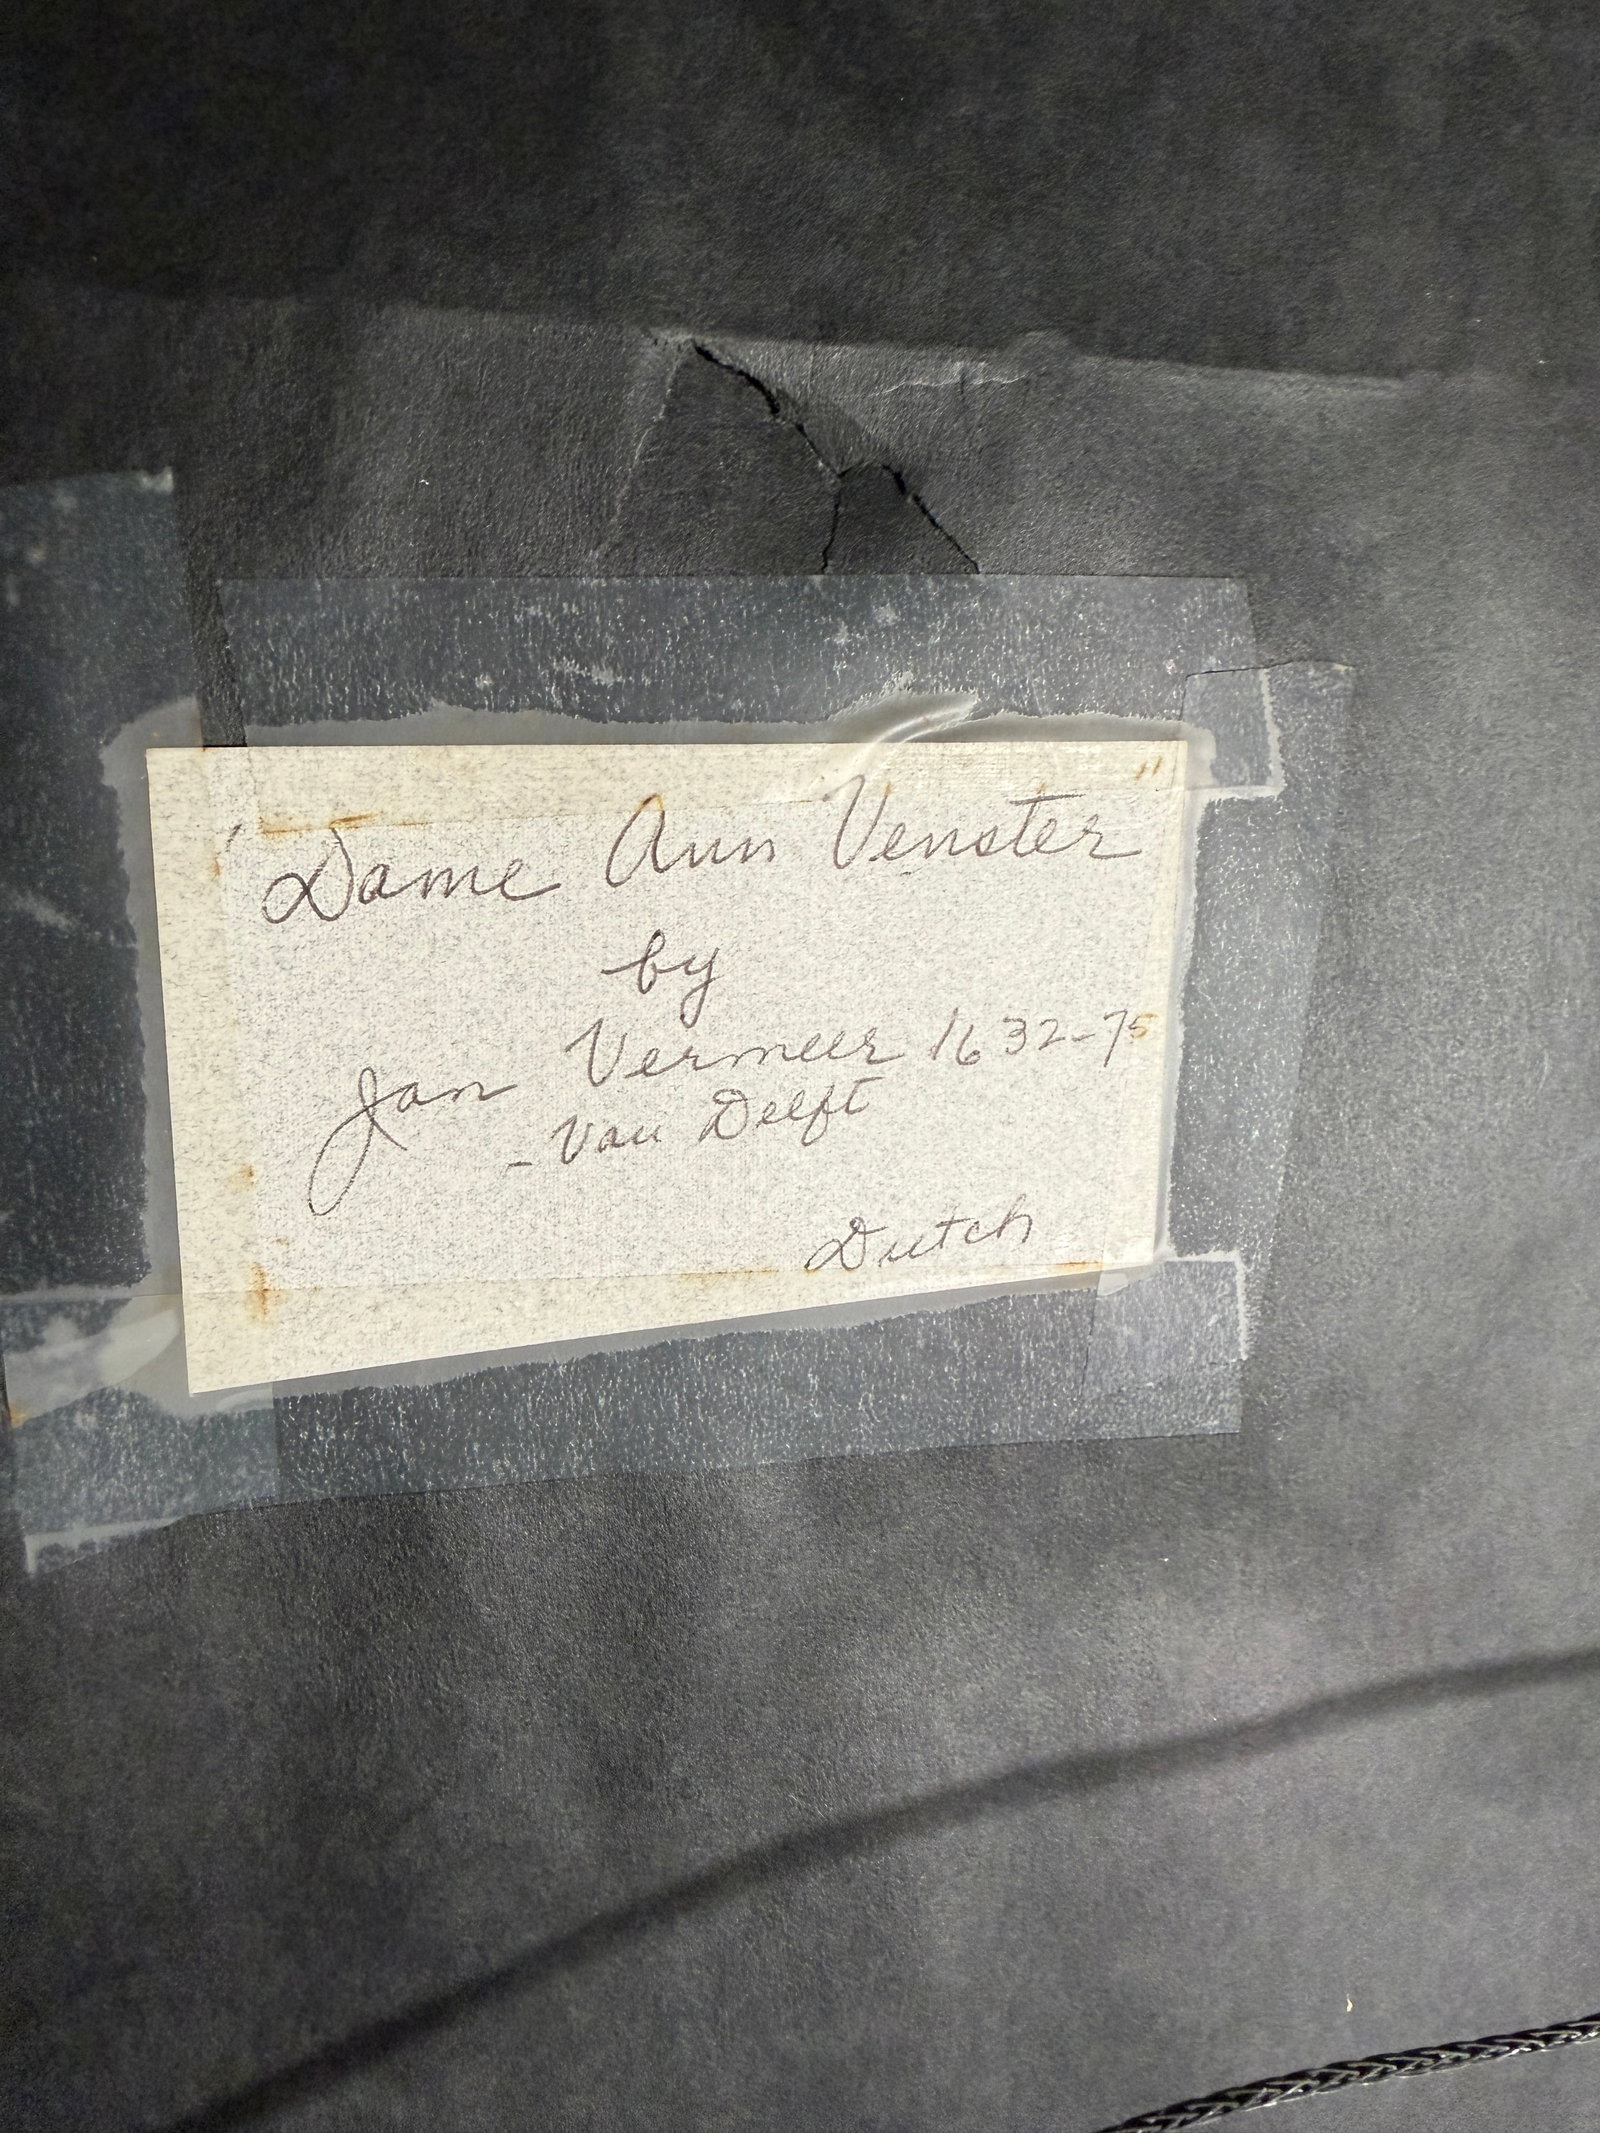 "Dame Ann Venster"
by
Jan Vermeer 1632-75
- Van Delft
Dutch